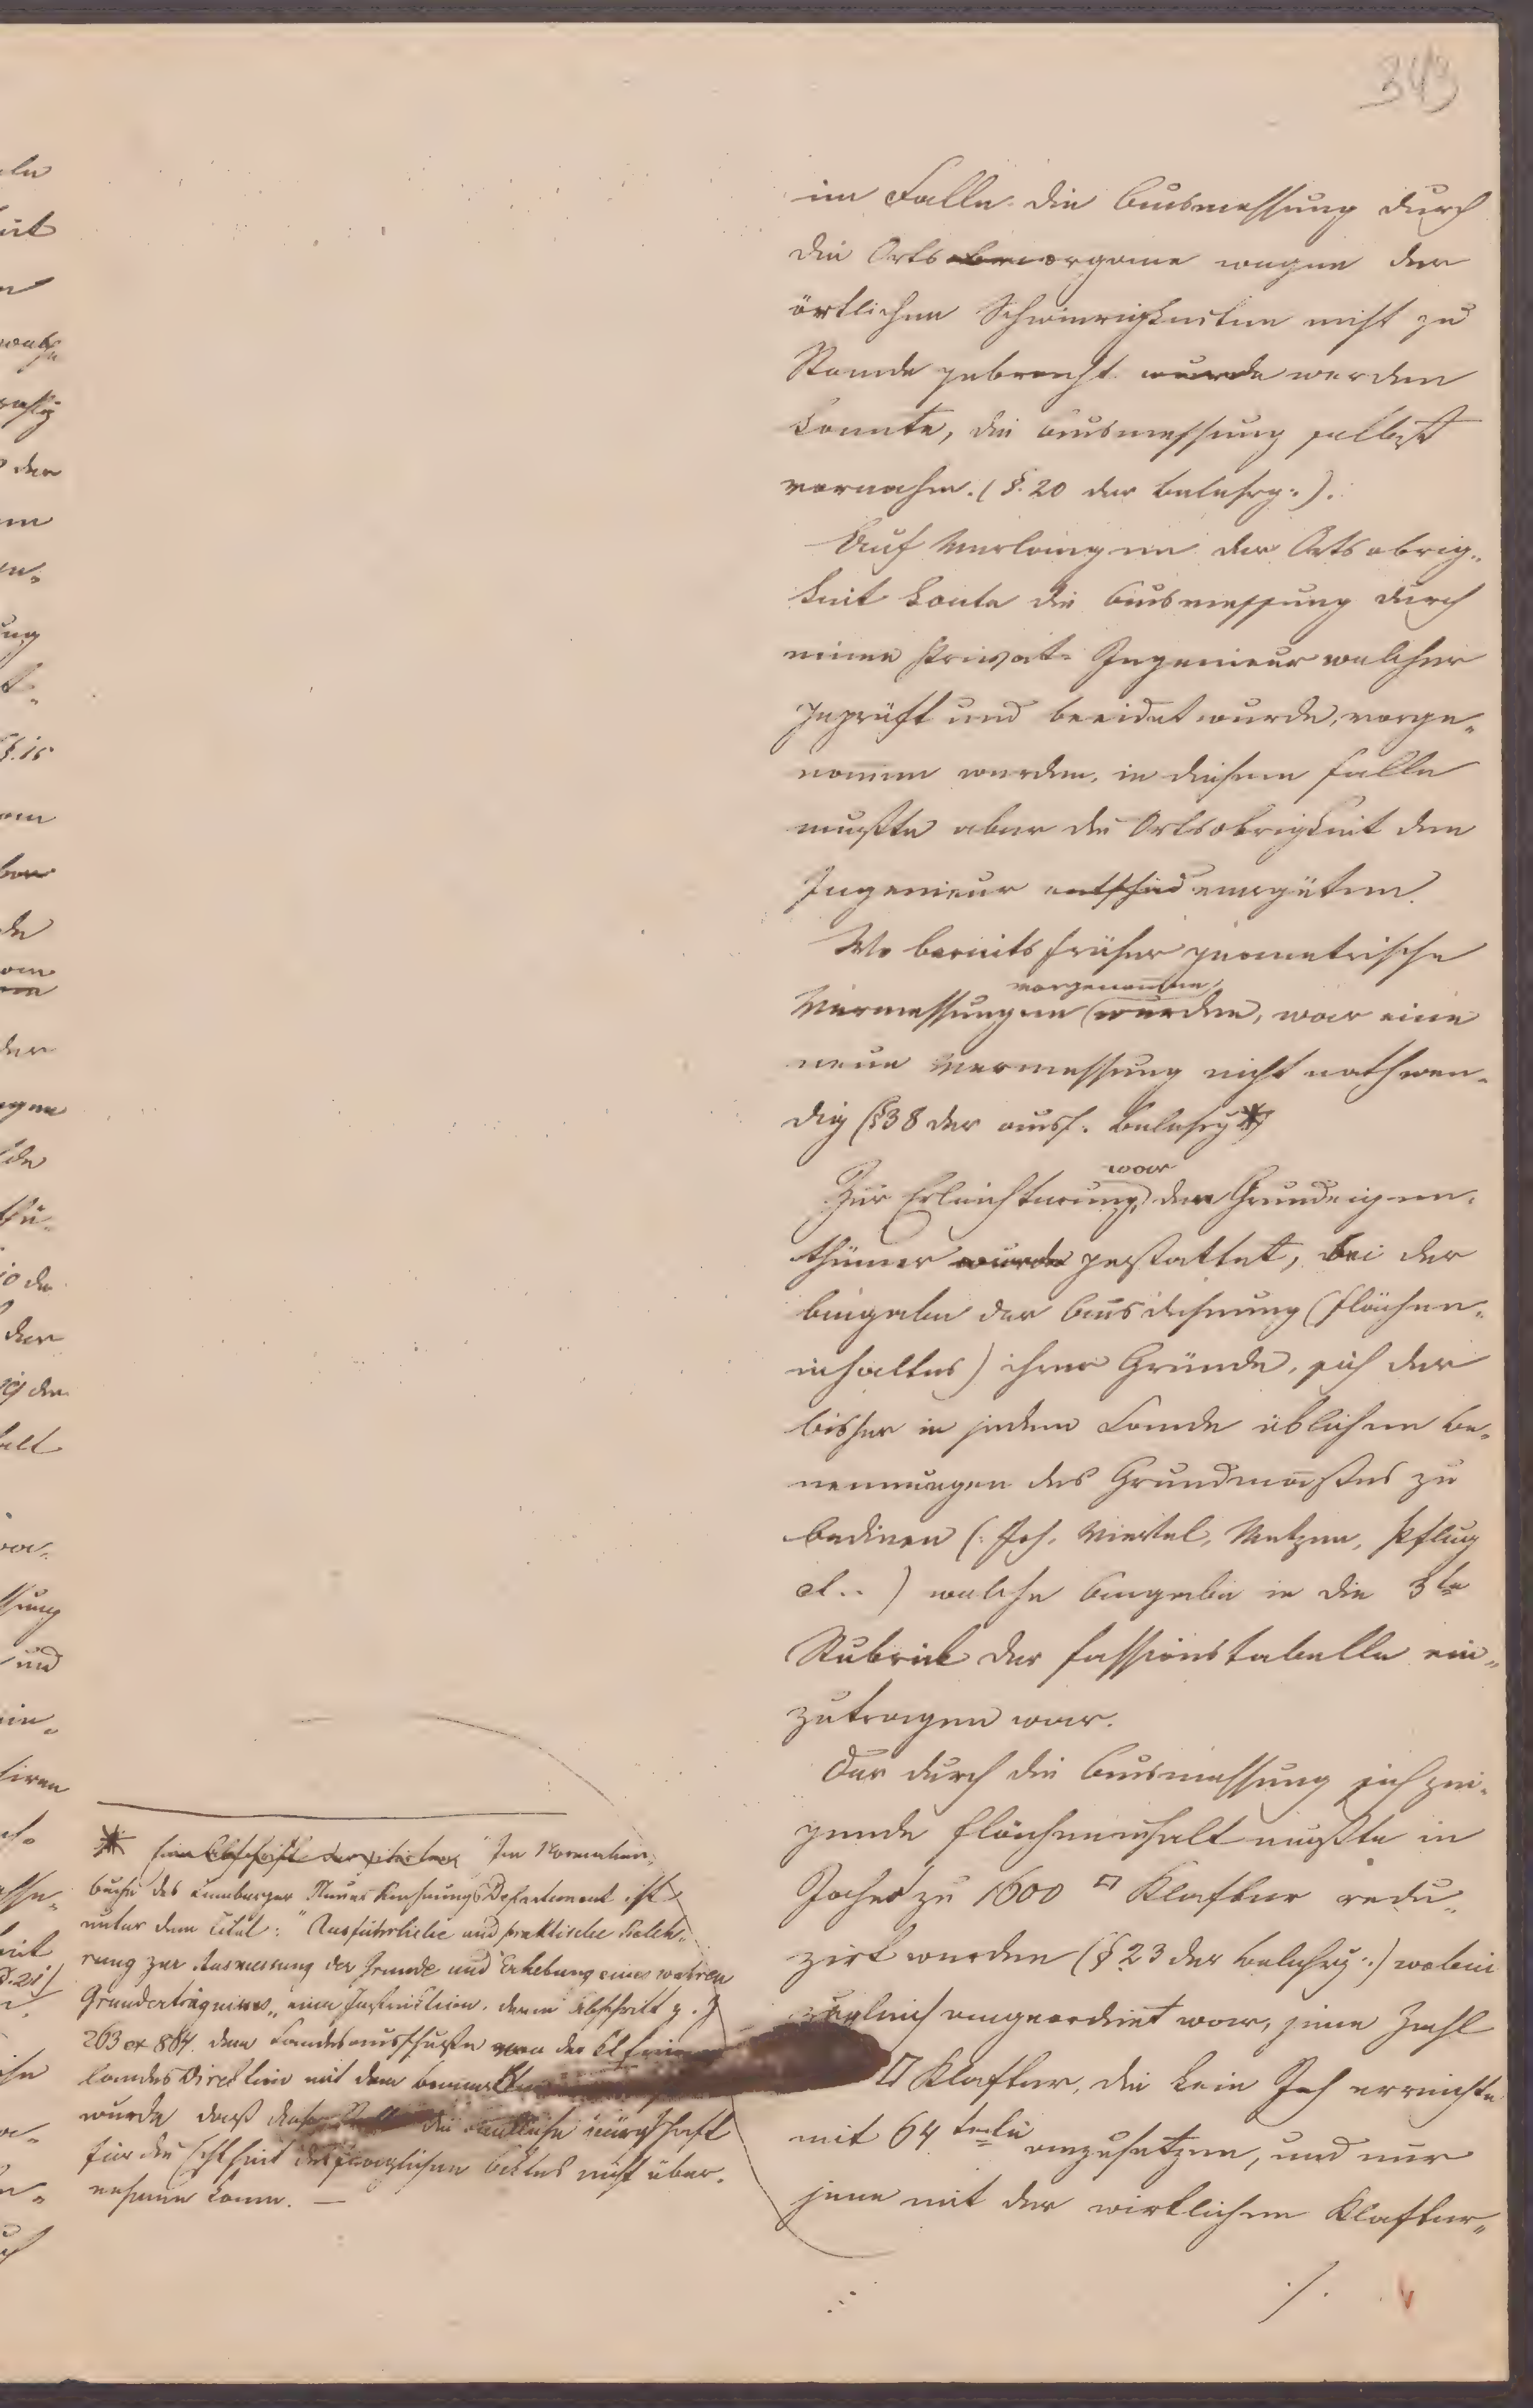 343
im Falle die Ausmessung durch
die Ortsorgane wegen der
örtlichen Schwierigkeiten nicht zu
Stande gebracht wurde werden
konnte, die Ausmessung selbst
vornahm. (§. 20 der Belehrg:).
Auf Verlangen der Ortsobrig„
keit konte die Ausmessung durch
einen Privat-Ingenieur welcher
geprüft und beeidet wurde, vorge„
nommen werden, in diesem Falle
mußte aber die Ortsobrigkeit den
Ingenieur entschäd vergüten.
Wo bereits früher geometrische
vorgenommen
Vermessungen wurden, war eine
neue Vermessung nicht nothwen„
dig (§38 der ausf. Belehrg*)
war
Zur Erleichterung, den Grundeigen„
thümer wurde gestattet, bei der
Angabe der Ausdehnung (Flächen„
inhaltes) ihrer Gründe, sich der
bisher in jedem Lande üblichen Be„
nennungen des Grundmaßes zu
bedinen (: Joh, Viertel, Metzen, Pflug
d..) welche Angabe in die 3te
Rubrick der Fassionstabelle ein„
zutragen war.
Der durch die Ausmessung sich zei„
gende Flächeninhalt mußte in
Joche zu 1600 □ Klafter redu„
zirt werden (§ 23 der Belehrg:) wobei
zugleich angeordnet war, jene Zahl
□ Klafter, die kein Joh erreichte
mit 64 teln anzusetzen, und nur
jene mit der wirklichen Klafter„
./.
* Eine Abschrift der Im Normalien„
buche des Lemberger Steuer Rechnungs Departement ist
unter dem Titel: "Ausführliche und praktische Beleh„
rung zur Ausmessung der Grunde und Erhebung eines wahren
Grunderträgnisses„ eine Instruktion, deren Abschrift z. Z
263 ex 884. dem Landesausschuße von der k k Finanz
Landes Direktion mit dem bemerken
wurde daß diese die amtliche Bürgschaft
für die Echtheit des fraglichen Aktes nicht über„
nehmen kann. —